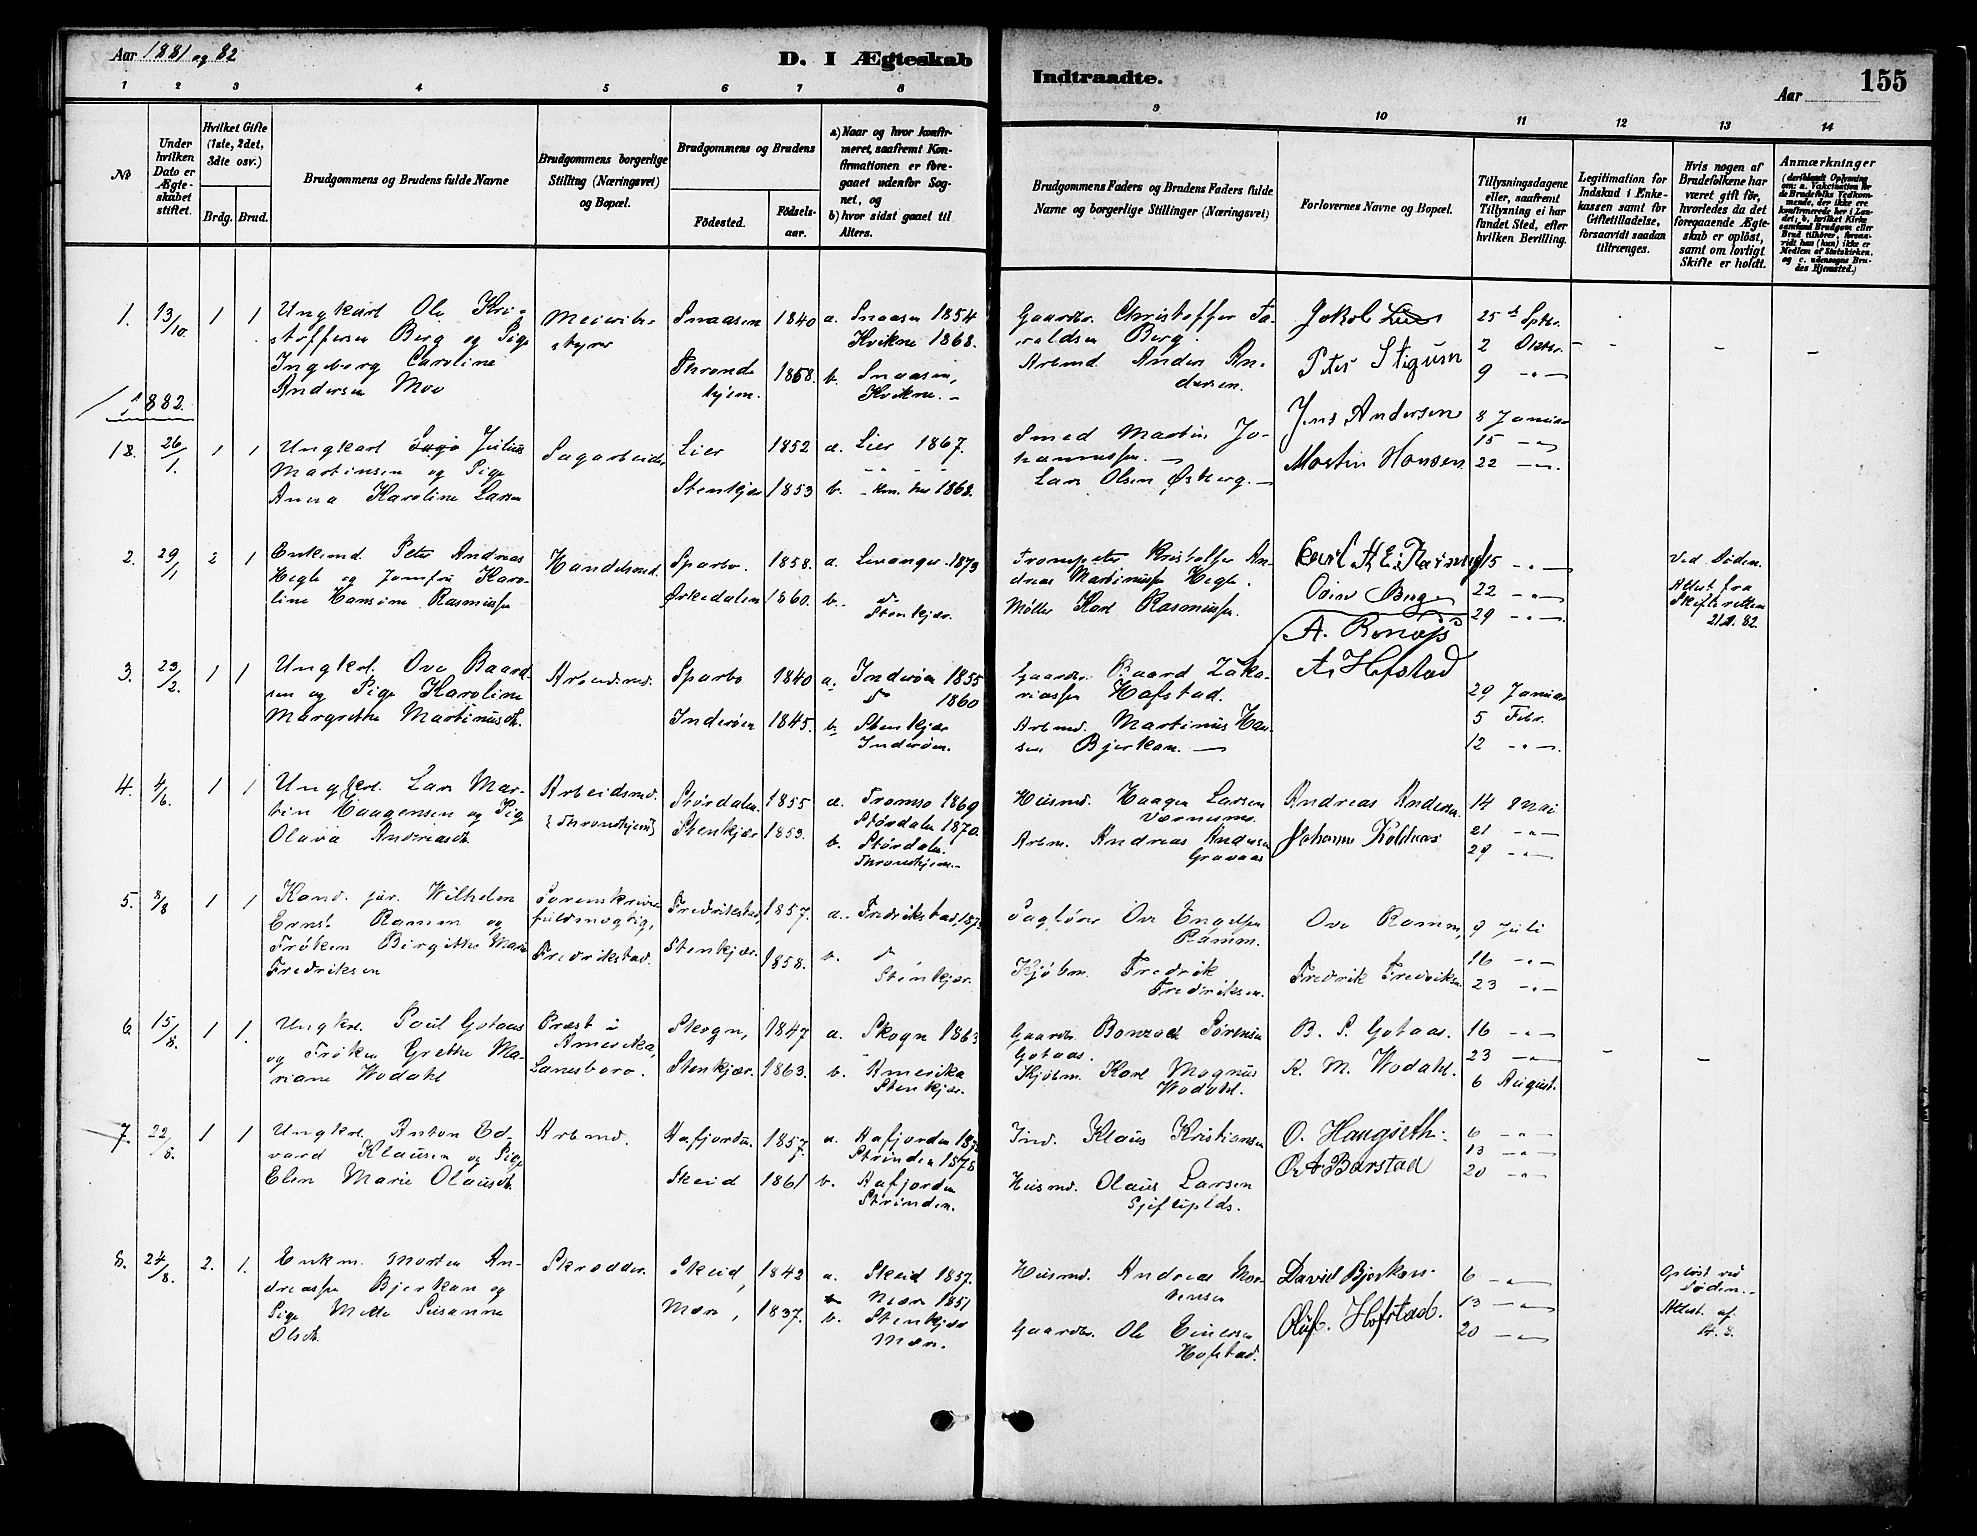 Aar 1881 og 82
D. I Ægteskab
Indtraadte.
155
Aar
1 2 3 4 5 6 7 8 9 10 11 12 13 14
No
Under hvilken Dato er Ægteskabet stiftet.
Hvilket Gifte (1ste, 2det, 3die osv.)
Brdg. Brud.
Brudgommens og Brudens fulde Navne
Brudgommens borgerlige Stilling (Næringsvei) og Bopæl.
Brudgommens og Brudens
Födested.
Födselsaar.
a) Naar og hvor konfirmeret, saafremt Konfirmationen er foregaaet udenfor Sognet, og
b) hvor sidst gaaet til Alters.
Brudgommens Faders og Brudens Faders fulde Navne og borgerlige Stillinger (Næringsvei)
Forlovernes Navne og Bopæl.
Tillysningsdagene eller, saafremt Tillysning ei har fundet Sted, efter hvilken Bevilling.
Legitimation for Indskud i Enkekassen samt for Giftetilladelse, forsaavidt saadan tiltrænges.
Hvis nogen af Brudefolkene har været gift för, hvorledes da det foregaaende Ægteskab er oplöst, samt om lovligt Skifte er holdt.
Anmærkninger
1. 13/10 1 1
Ungkarl Ole Kristoffersen Berg og Pige
Ingeborg Caroline
Andersen Moe
Meieribestyrer
Snaasen 1840
Throndhjem. 1858.
a. Snaasen 1854
Kvikne 1868.
b. Snaasen,
Kvikne. -
Gaardbr. Christoffer
Berg.
Arbmd Anders Andersen.
Jakob
Peter Stigum
25de Sptbr.
2 Oktbr.
9 -"-
1882.
18. 26/1. 1 1
Ungkarl Julius
Martinsen og Pige
Anna Karoline Larsen
Sagarbeider
Lier 1852
Stenkjær 1853
a. Lier 1867.
b. 1868.
Smed Martin Johannessen. -
Lars Olsen Øsberg. -
Jens Andersen
Martin Hansen
8 Januar
15 -"-
22 -"-
2. 29/1 2 1
Enkemd. Peter Andreas
Hegle og Jomfru Karoline Hansine Rasmussen
Handelsmd.
Sparbo. 1858.
Ørkedalen 1860.
a. Levanger 1873
b. do
Stenkjær.
Trompeter Kristoffer Andreas Martinussen Hegle.
Møller Karl Rasmussen.
15 -"-
22 -"-
29 -"-
Ved Døden.
Attest fra
Skifteretten
3. 23/2. 1 1
Ungkrl. Ove Baardsen og Pige Karoline
Margrethe Martinusdt.
Arbeidsmd.
Sparbo 1840
Inderøen 1845.
a. Inderøen 1855
do 1860
b. Stenkjær
Inderøen.
Gaardbr. Baard Zakariassen Hafstad.
Arbmd. Martinus Hansen Bjerkan. -
A. Hofstad
29 Januar
5 Febr.
12 -"-
4. 4/6. 1 1
Ungkrl. Lars Martin Haagensen og Pige
Olava Andreasdt.
Arbeidsmd.
Throndhjem
Størdalen 1855
Stenkjær 1853.
a. Tromsø 1869
Størdalen 1870.
b. Størdalen.
Throndhjem.
Husmd. Haagen Larsen
Værnesmo.
Arbm. Andreas Andersen
Gravaas
Andreas Andersen.
Johannes Koldaas
14 Mai
21 -"-
29 -"-
5. 8/8 1 1
Kand. jur. Wilhelm
Ernst Ramm og
Frøken Birgitte Marie
Fredriksen
Sorenskriverfuldmægtig,
Fredrikstad.
Fredrikstad, 1857.
Stenkjær. 1858.
a. Fredrikstad,
b. do
Stenkjær.
Sagfører Ove Engelsen
Ramm.
Kjøbm. Fredrik
Fredriksen.
Ove Ramm,
Fredrik Fredriksen
9 Juli
16 -"-
23 -"-
6. 15/8. 1 1.
Ungkrl. Poul Gotaas
og Frøken Grethe Mariane Wodahl
Præst i
Amerika,
Lanesboro.
Skogn, 1847
Stenkjær. 1863.
a. Skogn 1863
b. Amerika
Stenkjær.
Gaardbr. Sørensen
Gotaas.
Kjøbm. Karl Magnus
Wodahl.
B. S. Gotaas.
K. M. Wodahl.
16 -"-
23 -"-
6 August.
7. 22/8. 1 1
Ungkrl. Anton Edvard Klausen og Pige
Elen Marie Olausdt.
Arbmd.
Aafjorden. 1857
Skeid 1861
a. Aafjorden
Strinden 1878
b. Aafjorden
Strinden.
Ind. Klaus Kristiansen
Husmd. Olaus Larsen
O. Haugseth.
Barstad
6 -"-
13 -"-
20 -"-
8. 24/8. 2. 1.
Enkm. Morten Andreassen Bjerkan og
Pige Mette Susanne
Olsdt.
Skrædder.
Skeid, 1842
Mære, 1837.
a. Skeid 1857.
Mære 1851
b. Stenkjær
Mære.
Husmd. Andreas Mortensen
Gaardbr. Ole Einersen
Hofstad.
David Bjerkan.
Oluf. Hofstad.
6 -"-
13 -"-
20 -"-
Opløst ved
Døden. -
Attest af